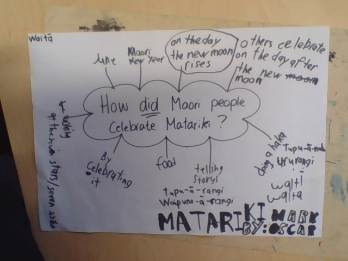 Waitā
June
Maori
New Year
on the day
the new moon
rises
others celebrate
on the day after
the new moon
moon
How did Maori people
Celebrate Matariki?
By
Celebrating
it
food
telling
storys
Tupu-ā-rangi
Waipuna-ā-rangi
doing a haka
Tupu-ā-
Ururangi
waiti
waita
MATARIKI MARK
BY: OSCAR